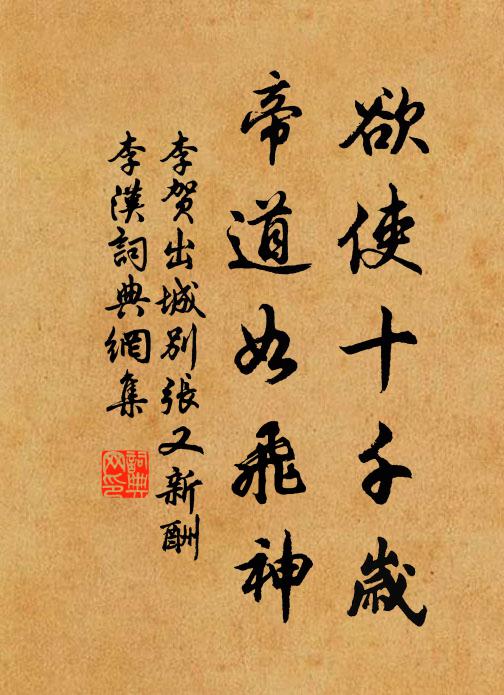 欲使十千歲
帝道如飛神
李賀出城別張又新酬
李漢詞典網集
詞典網印